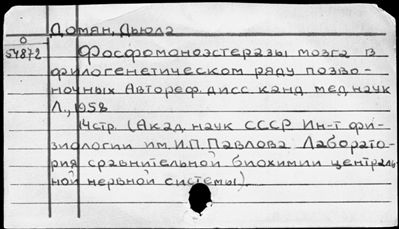 Домян, Дьюла
О
54872
Фосфомоноэстеразы мозга в
филогенетическом ряду позво-
ночных Автореф. дисс. канд. мед. наук
Л., 1958
14 стр. (Акад. наук СССР Ин-т фи-
зиологии им. И.П. Павлова Лаборато-
рия сравнительной биохимии централь-
ной нервной системы).